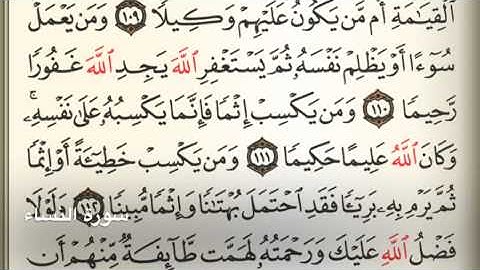 ٱلۡقِيَٰمَةِ أَم مَّن يَكُونُ عَلَيۡهِمۡ وَكِيلٗا ١٠٩ وَمَن يَعۡمَلۡ
سُوٓءًا أَوۡ يَظۡلِمۡ نَفۡسَهُۥ ثُمَّ يَسۡتَغۡفِرِ ٱللَّهَ يَجِدِ ٱللَّهَ غَفُورٗا
رَّحِيمٗا ١١٠ وَمَن يَكۡسِبۡ إِثۡمٗا فَإِنَّمَا يَكۡسِبُهُۥ عَلَىٰ نَفۡسِهِۦۚ
وَكَانَ ٱللَّهُ عَلِيمًا حَكِيمٗا ١١١ وَمَن يَكۡسِبۡ خَطِيٓـَٔةً أَوۡ إِثۡمٗا
ثُمَّ يَرۡمِ بِهِۦ بَرِيٓـٔٗا فَقَدِ ٱحۡتَمَلَ بُهۡتَٰنٗا وَإِثۡمٗا مُّبِينٗا ١١٢ وَلَوۡلَا
سورة النساء
فَضۡلُ ٱللَّهِ عَلَيۡكَ وَرَحۡمَتُهُۥ لَهَمَّت طَّآئِفَةٞ مِّنۡهُمۡ أَن